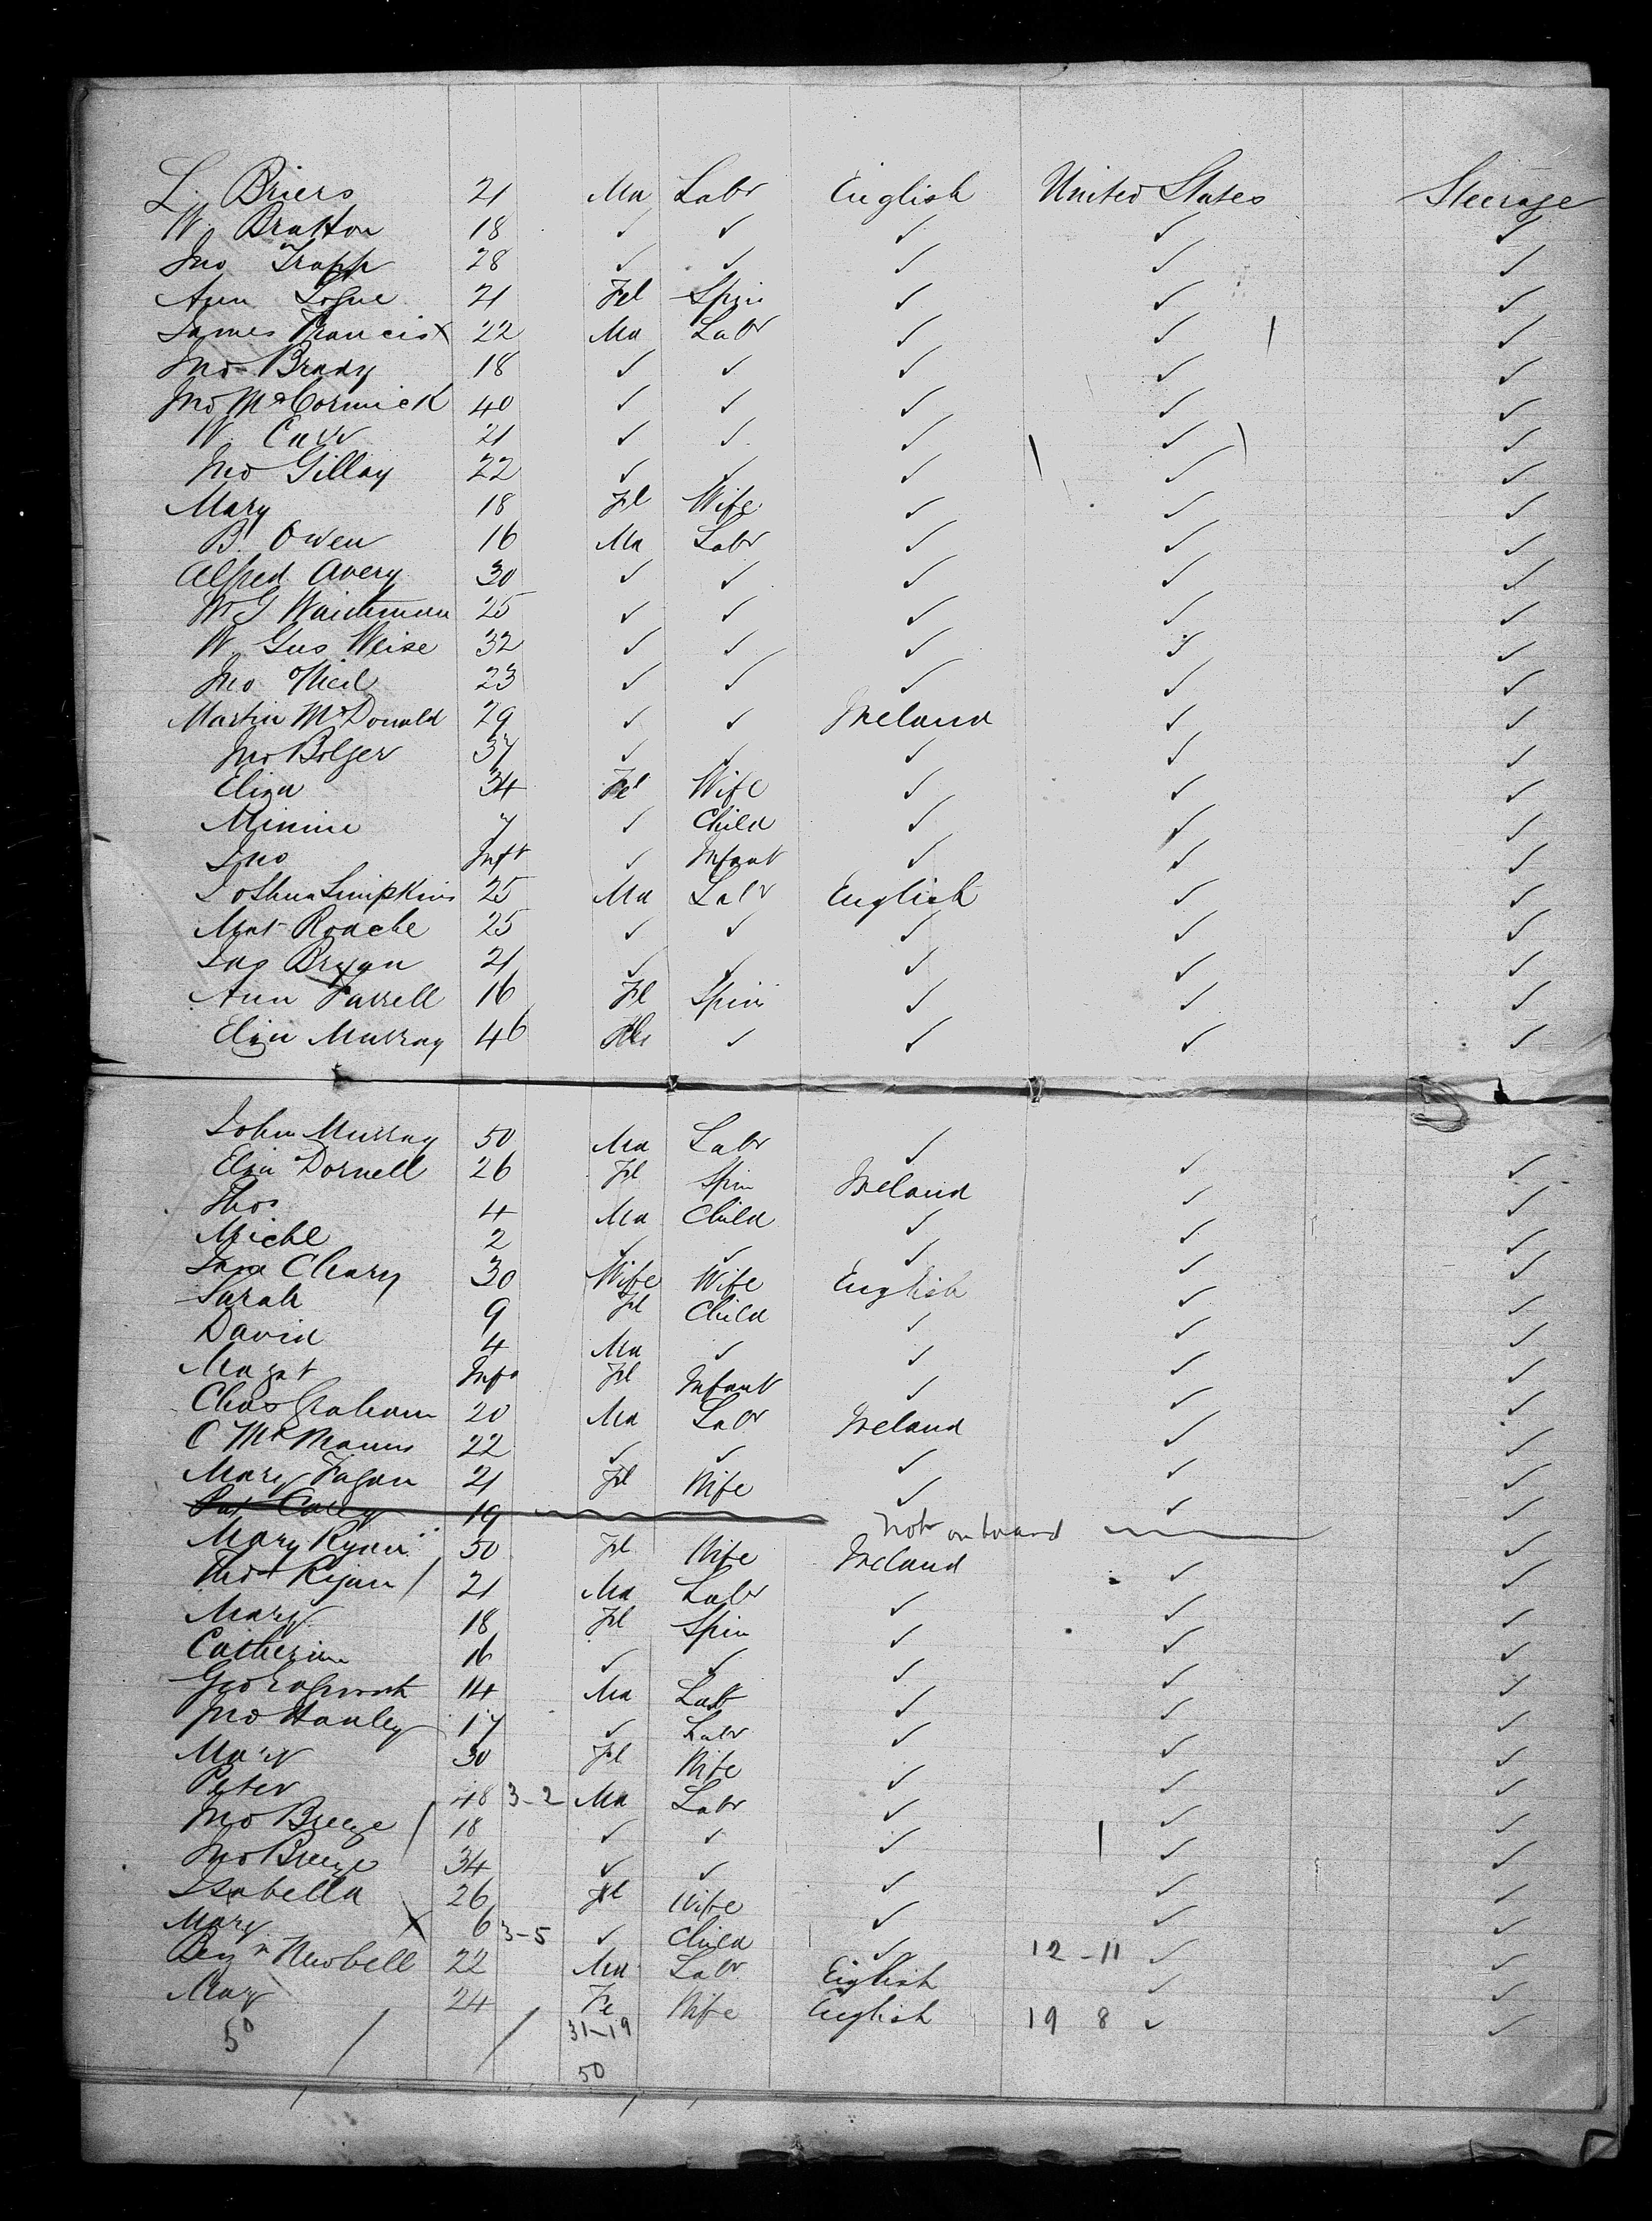 L. Briers 21 Ma Labr English United States Steerage
W. Bratton 18 ✓ ✓ ✓ ✓ ✓
Jno Trapp 28 ✓ ✓ ✓ ✓ ✓
Ann Logue 21 Fel Spin ✓ ✓ ✓
James Francis x 22 Ma Labr ✓ ✓ ✓
Jno Brady 18 ✓ ✓ ✓ ✓ ✓
Jno McCormick 40 ✓ ✓ ✓ ✓ ✓
W. Carr 21 ✓ ✓ ✓ ✓ ✓
Jno Gillay 22 ✓ ✓ ✓ ✓ ✓
Mary 18 Fl Wife ✓ ✓ ✓
B. Owen 16 Ma Labr ✓ ✓ ✓
Alfred Avery 30 ✓ ✓ ✓ ✓ ✓
W G 25 ✓ ✓ ✓ ✓ ✓
W. Gus Weise 32 ✓ ✓ ✓ ✓ ✓
Jno ONeil 23 ✓ ✓ ✓ ✓ ✓
Martin McDonald 29 ✓ ✓ Ireland ✓ ✓
Jno Bolger 37 ✓ ✓ ✓ ✓ ✓
Eliza 34 Fel Wife ✓ ✓ ✓
Minnie 7 ✓ Child ✓ ✓ ✓
Jno Inft ✓ Infant ✓ ✓ ✓
Joshua Simpkins 25 Ma Labr English ✓ ✓
Mat Roache 25 ✓ ✓ ✓ ✓ ✓
Jas Bryan 21 ✓ ✓ ✓ ✓ ✓
Ann Farrell 16 Fl Spin ✓ ✓ ✓
Eliza Murray 46 ✓ ✓ ✓ ✓
John Murray 50 Ma Labr ✓ ✓ ✓
Eliza Dornell 26 Fl Spin Ireland ✓ ✓
Thos 4 Ma Child ✓ ✓ ✓
Michl 2 ✓ ✓ ✓ ✓ ✓
Jane Cleary 30 Wife Wife English ✓ ✓
Sarah 9 Fl Child ✓ ✓ ✓
David 4 Ma ✓ ✓ ✓ ✓
Margt Inft Fl Infant ✓ ✓ ✓
Chas Graham 20 Ma Labr Ireland ✓ ✓
C McManus 22 ✓ ✓ ✓ ✓ ✓
Mary Fagan 21 Fl Wife ✓ ✓ ✓
Pat 19 not on board
Mary Ryan 50 Fl Wife Ireland ✓ ✓
Thos Ryan / 21 Ma Labr ✓ ✓ ✓
Mary 18 Fl Spin ✓ ✓ ✓
Catherine 16 ✓ ✓ ✓ ✓ ✓
Geo 14 Ma Labr ✓ ✓ ✓
Jno Hanley 17 ✓ Labr ✓ ✓ ✓
Mary 30 Fl Wife ✓ ✓ ✓
Peter 48 3-2 Ma Labr ✓ ✓ ✓
Jno Breeze / 18 ✓ ✓ ✓ ✓ ✓
Jno Breeze 34 ✓ ✓ ✓ ✓ ✓
Isabella 26 Fl Wife ✓ ✓ ✓
Mary x 6 3-5 ✓ Child ✓ 12-11 ✓ ✓
Benjn Newbell 22 Ma Labr English ✓ ✓
Mary 24 Fe Wife English 19 8 ✓ ✓
50 / / 31-19
50